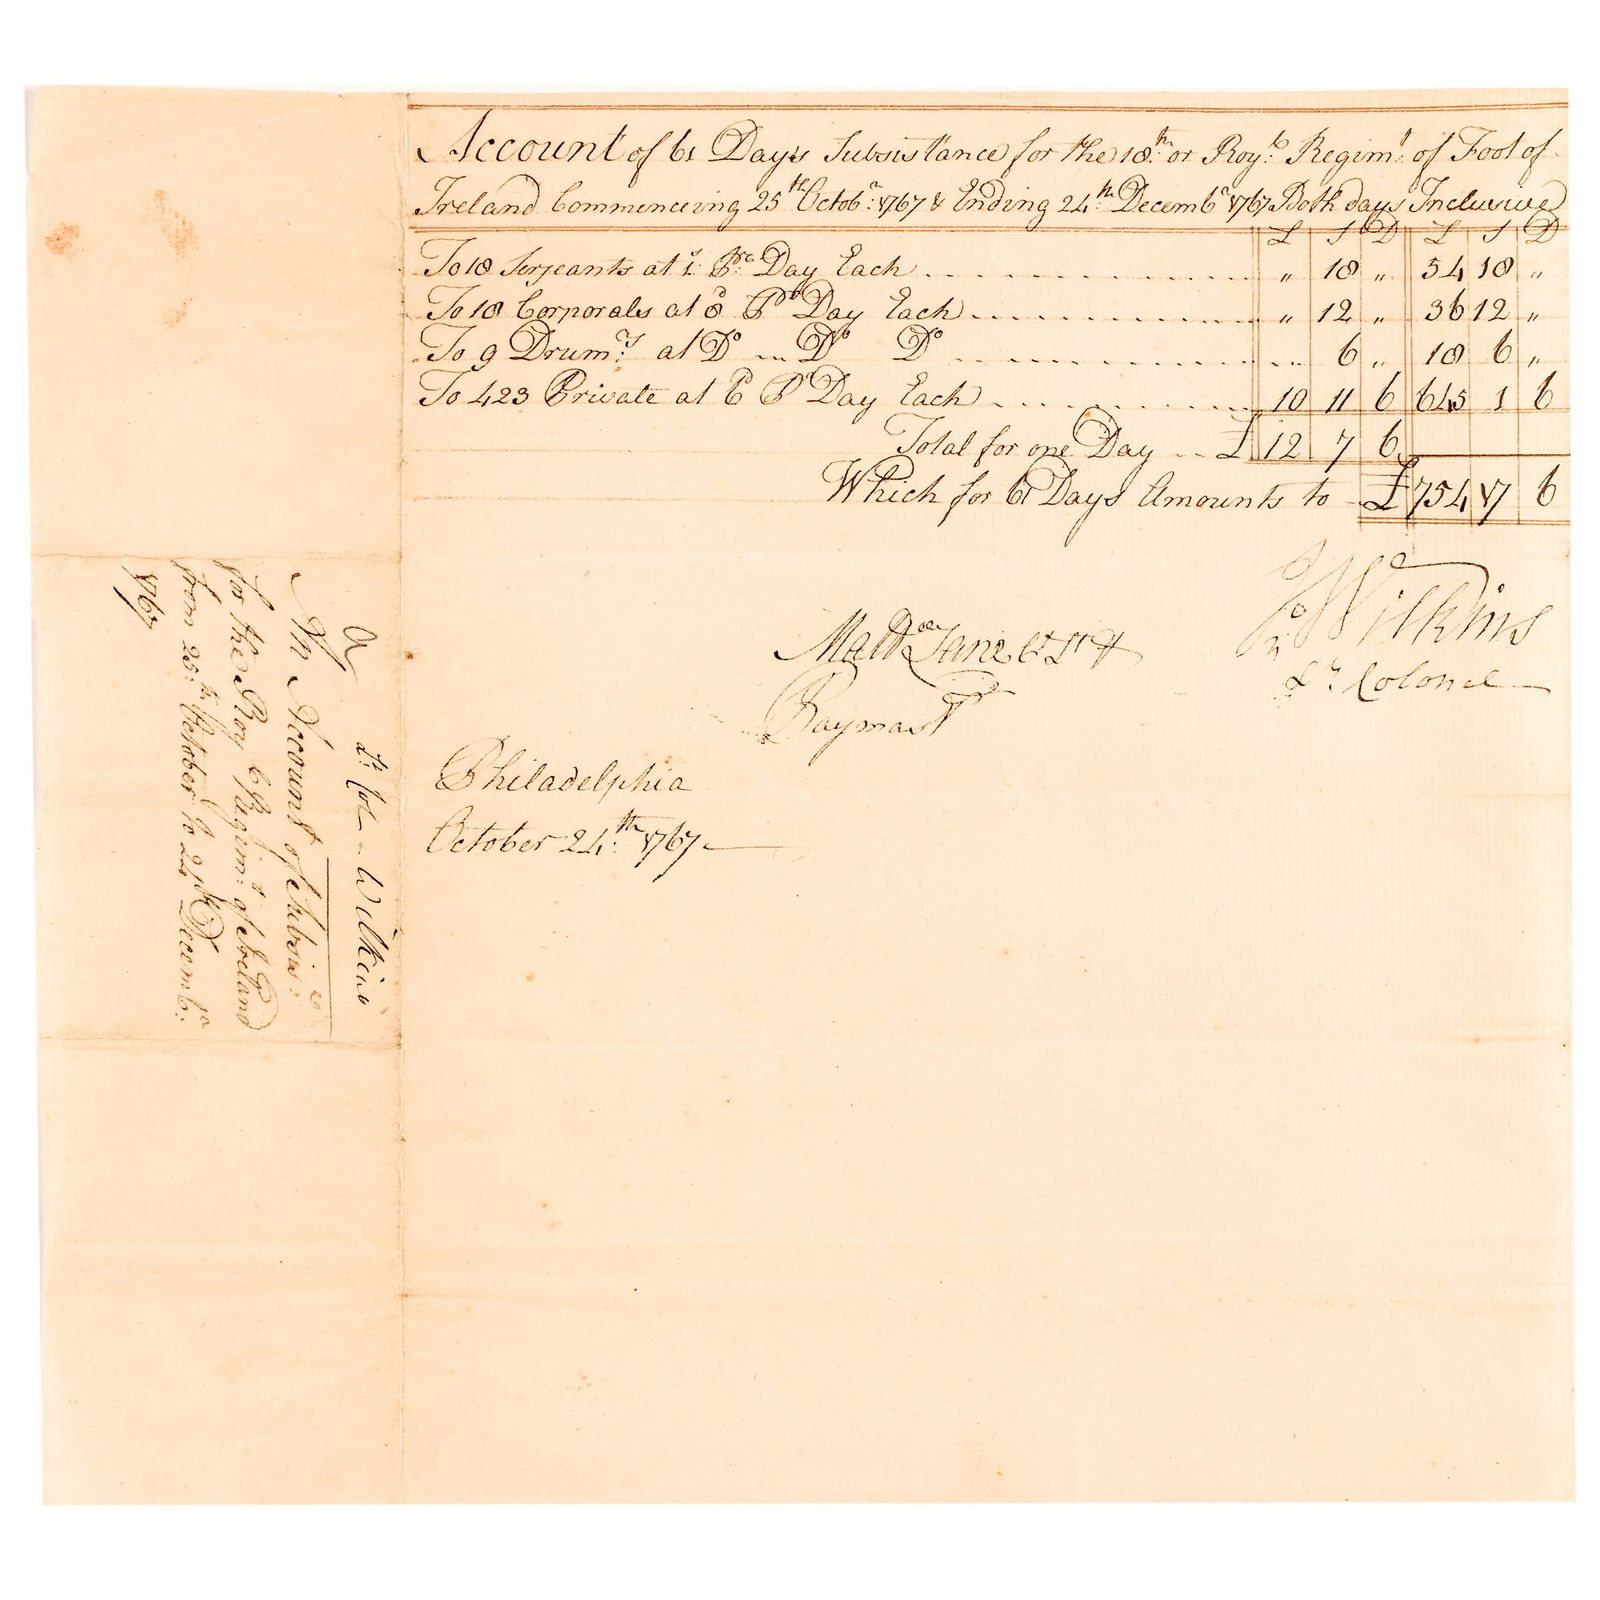 Account of 61 Day's Subsistance for the 18.th or Roy.l Regim.t of Foot of
Ireland Commenceing 25.th Octob.r 1767 & Ending 24.th Decemb.r 1767 Both days Inclusive
£ S D £ S D
To 18 Serjeants at 1.s P.r Day Each " 18 " 54 18 "
To 18 Corporals at 8.d P.r Day Each " 12 " 36 12 "
To 9 Drum.rs at D.o ... D.o D.o ... 6 " 18 6 "
To 423 Private at 6.d P.r Day Each 10 11 6 645 1 6
Total for one Day £ 12 7 6
Which for 61 Days Amounts to £ 754 17 6
Jn.o Wilkins
L.t Colonel
Matt.w Lane
Paymast.r
Philadelphia
October 24.th 1767
L.t Col. Wilkins
An Account of Subsis.ce
for the Roy.l Regim.t of Ireland
from 25.th October to 24.th Decemb.r
1767